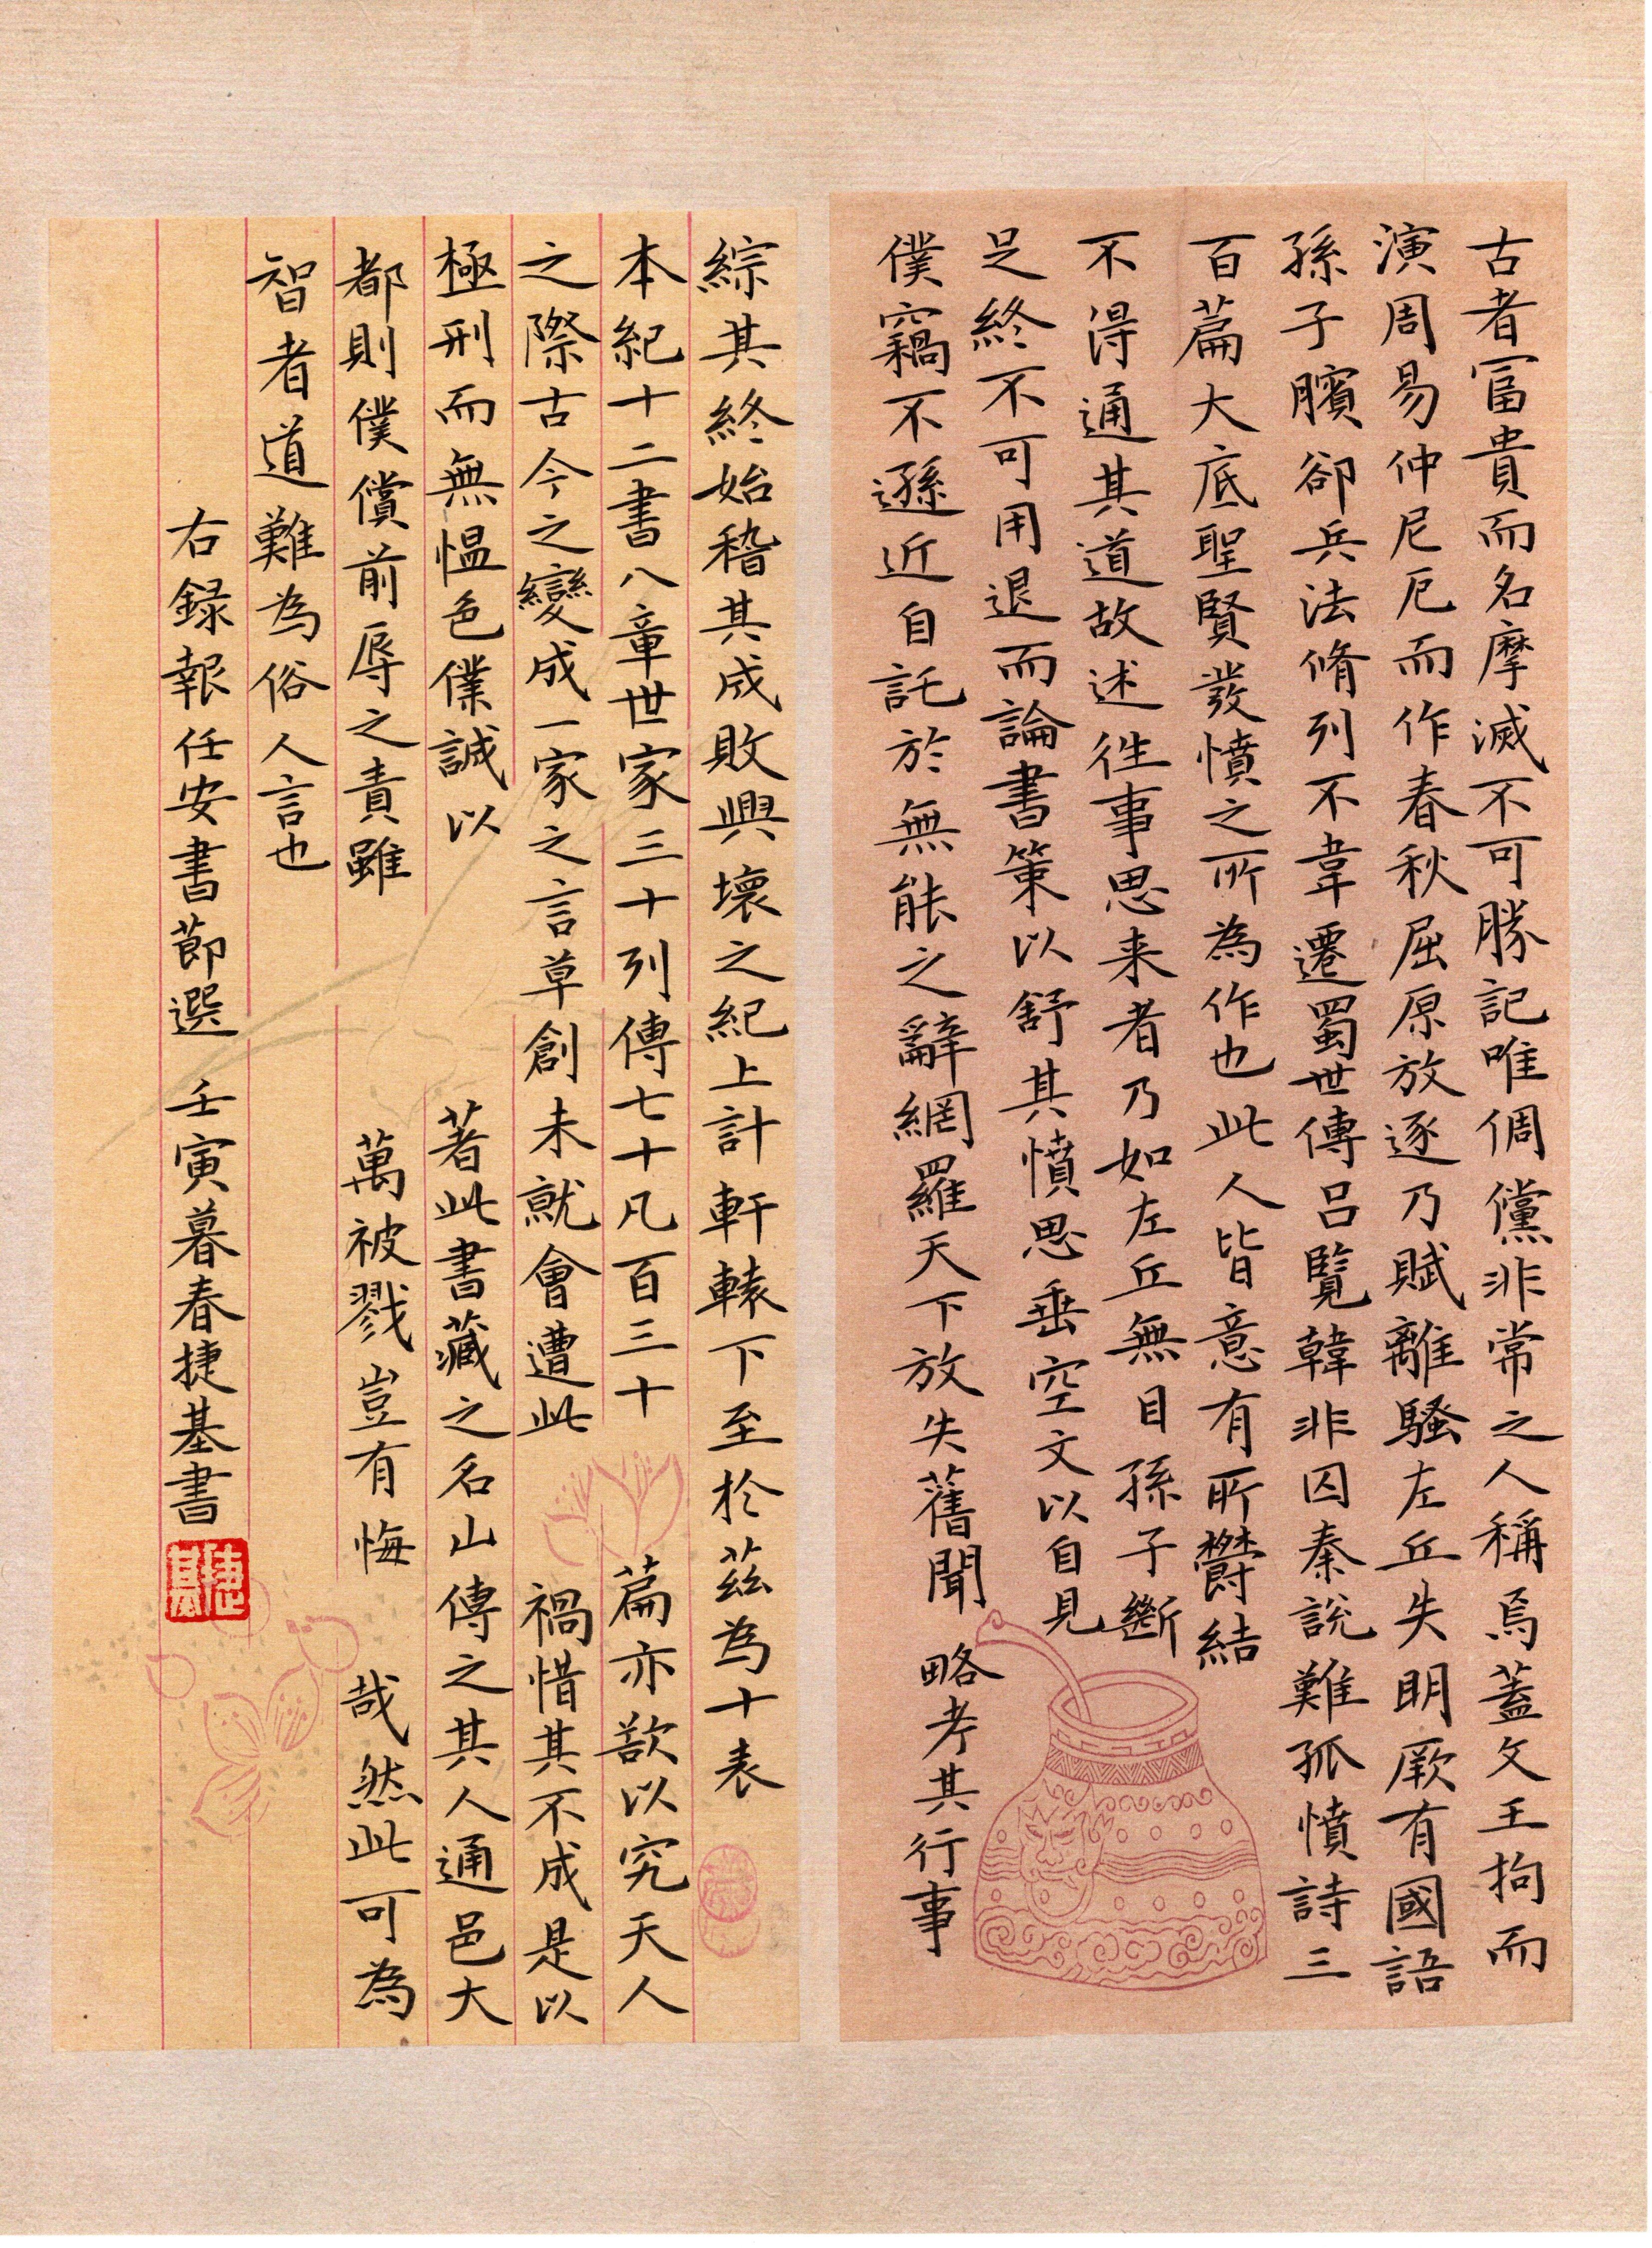 古者富貴而名摩滅不可勝記唯倜儻非常之人稱焉蓋文王拘而
演周易仲尼厄而作春秋屈原放逐乃賦離騷左丘失明厥有國語
孫子臏卻兵法脩列不韋遷蜀世傳呂覽韓非囚秦說難孤憤詩三
百篇大底聖賢發憤之所為作也此人皆意有所鬱結
不得通其道故述往事思来者乃如左丘無目孫子斷
足終不可用退而論書策以舒其憤思垂空文以自見
僕竊不遜近自託於無能之辭網羅天下放失舊聞略考其行事
綜其終始稽其成敗興壞之紀上計軒轅下至於茲為十表
本紀十二書八章世家三十列傳七十凡百三十篇亦欲以究天人
之際古今之變成一家之言草創未就會遭此禍惜其不成是以
極刑而無慍色僕誠以著此書藏之名山傳之其人通邑大
都則僕償前辱之責雖萬被戮豈有悔哉然此可為
智者道難為俗人言也
右録報任安書節選 壬寅暮春捷基書
捷基